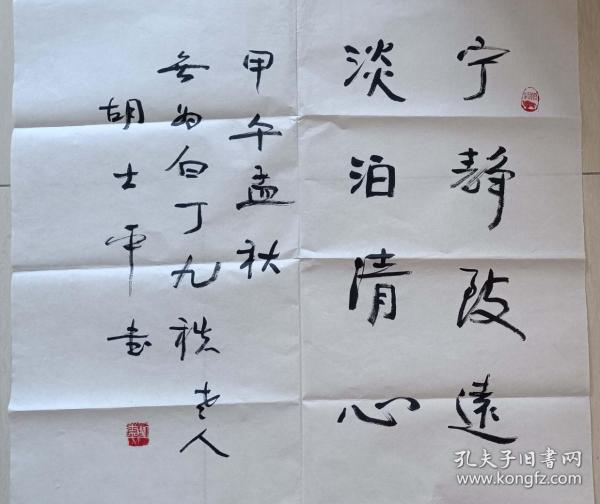 宁静致遠
淡泊清心
甲午孟秋
无为白丁九秩老人
胡士平书
孔夫子旧书网
www.kongfz.com